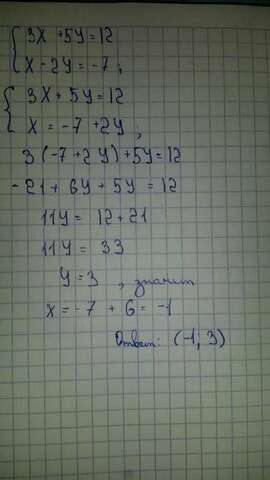 3x + 5y = 12
x - 2y = -7;
3x + 5y = 12
x = -7 + 2y,
3(-7 + 2y) + 5y = 12
-21 + 6y + 5y = 12
11y = 12 + 21
11y = 33
y = 3 , значит
x = -7 + 6 = -1
Ответ: (-1; 3)